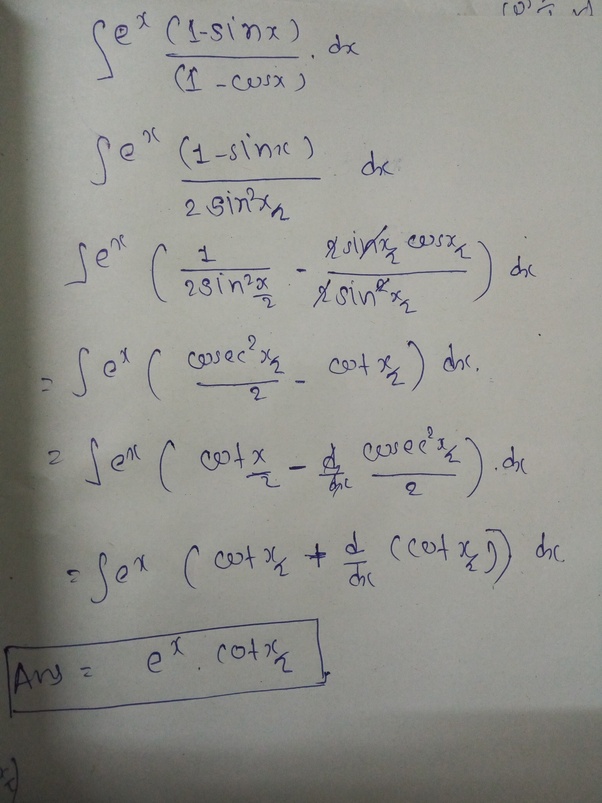 ∫e^x (1-sinx)/(1-cosx) . dx
∫e^x (1-sinx)/(2sin²x/2) dx
∫e^x (1/(2sin²x/2) - (2sinx/2 cosx/2)/(2sin²x/2)) dx
= ∫e^x (cosec²x/2/2 - cot x/2) dx.
= ∫e^x (cot x/2 - d/dx cosec²x/2/2) . dx
= ∫e^x (cot x/2 + d/dx (cot x/2)) dx
Ans = e^x . cot x/2